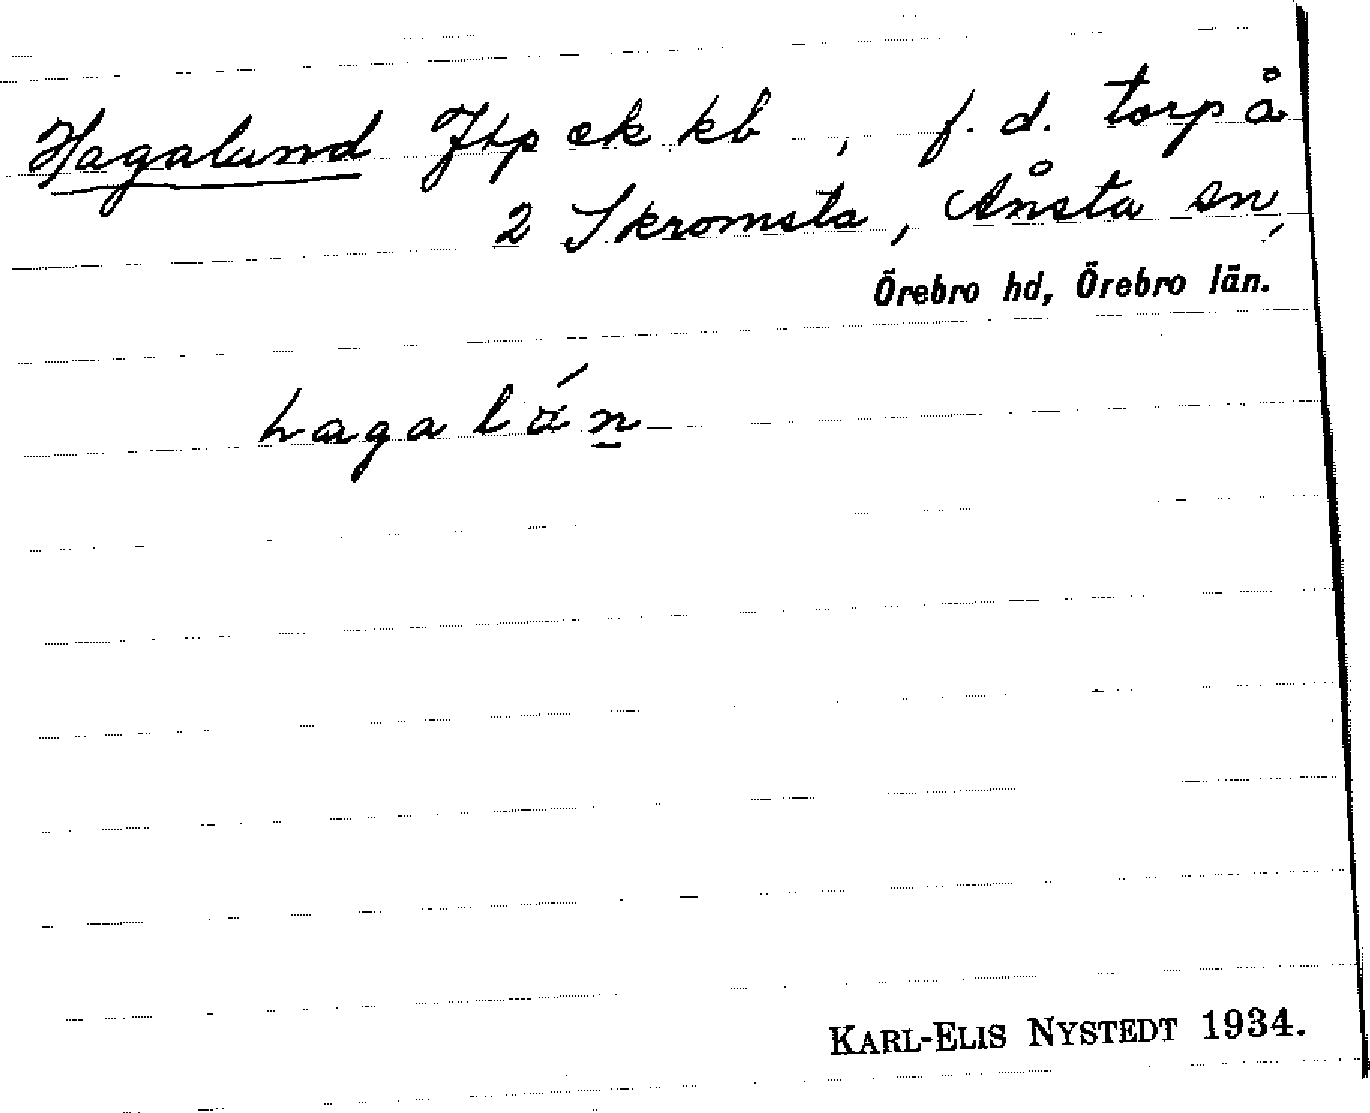 Hagalund Jtp ek kb, f.d. torp å
2 Skromsta, Ånsta sn,
Örebro hd, Örebro län.
hagalán
KARL-ELIS NYSTEDT 1934.